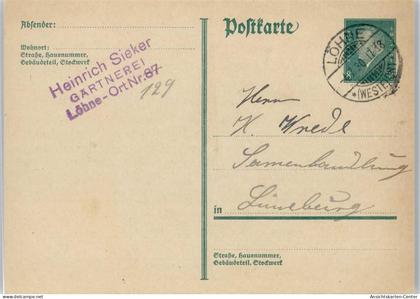 Absender:
Wohnort:
Straße, Hausnummer,
Gebäudeteil, Stockwerk
Heinrich Sieker
GÄRTNEREI
Löhne-Ort Nr. 87
129
Postkarte
LÖHNE
(WESTF.)
8
Herrn
H. Wrede
Samenhandlung
in Lüneburg
Straße, Hausnummer,
Gebäudeteil, Stockwerk